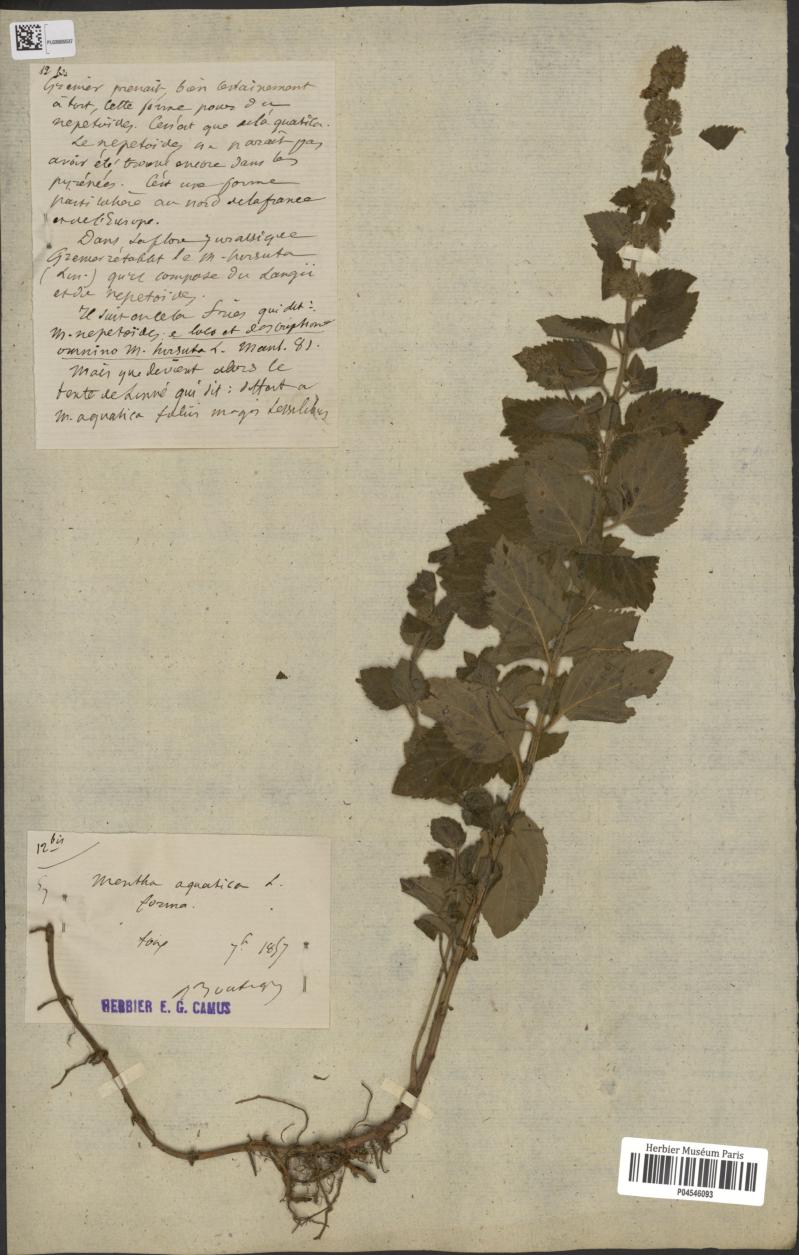 12 bis
Grenier prenait, bien certainement
à tort, cette forme pour du
nepetoides. Ce n'est que de l'aquatica.
Le nepetoides ne paraît pas
avoir été trouvé encore dans les
pyrénées. C'est une forme
particulière au nord de la france
et de l'Europe.
Dans la flore jurassique
Grenier rétablit le M. hirsuta
(Lin.) qu'il compose du
et du nepetoides.
Il suit en cela Fries qui dit :
M. nepetoides e loco et descriptione
omnino M. hirsuta L. Mant. 81.
Mais que devient alors le
texte de Linné qui dit : differt a
M. aquatica foliis magis sessilibus
12 bis
Mentha aquatica L.
forma.
7b 1857
HERBIER E. G. CAMUS
Herbier Muséum Paris
P04546093